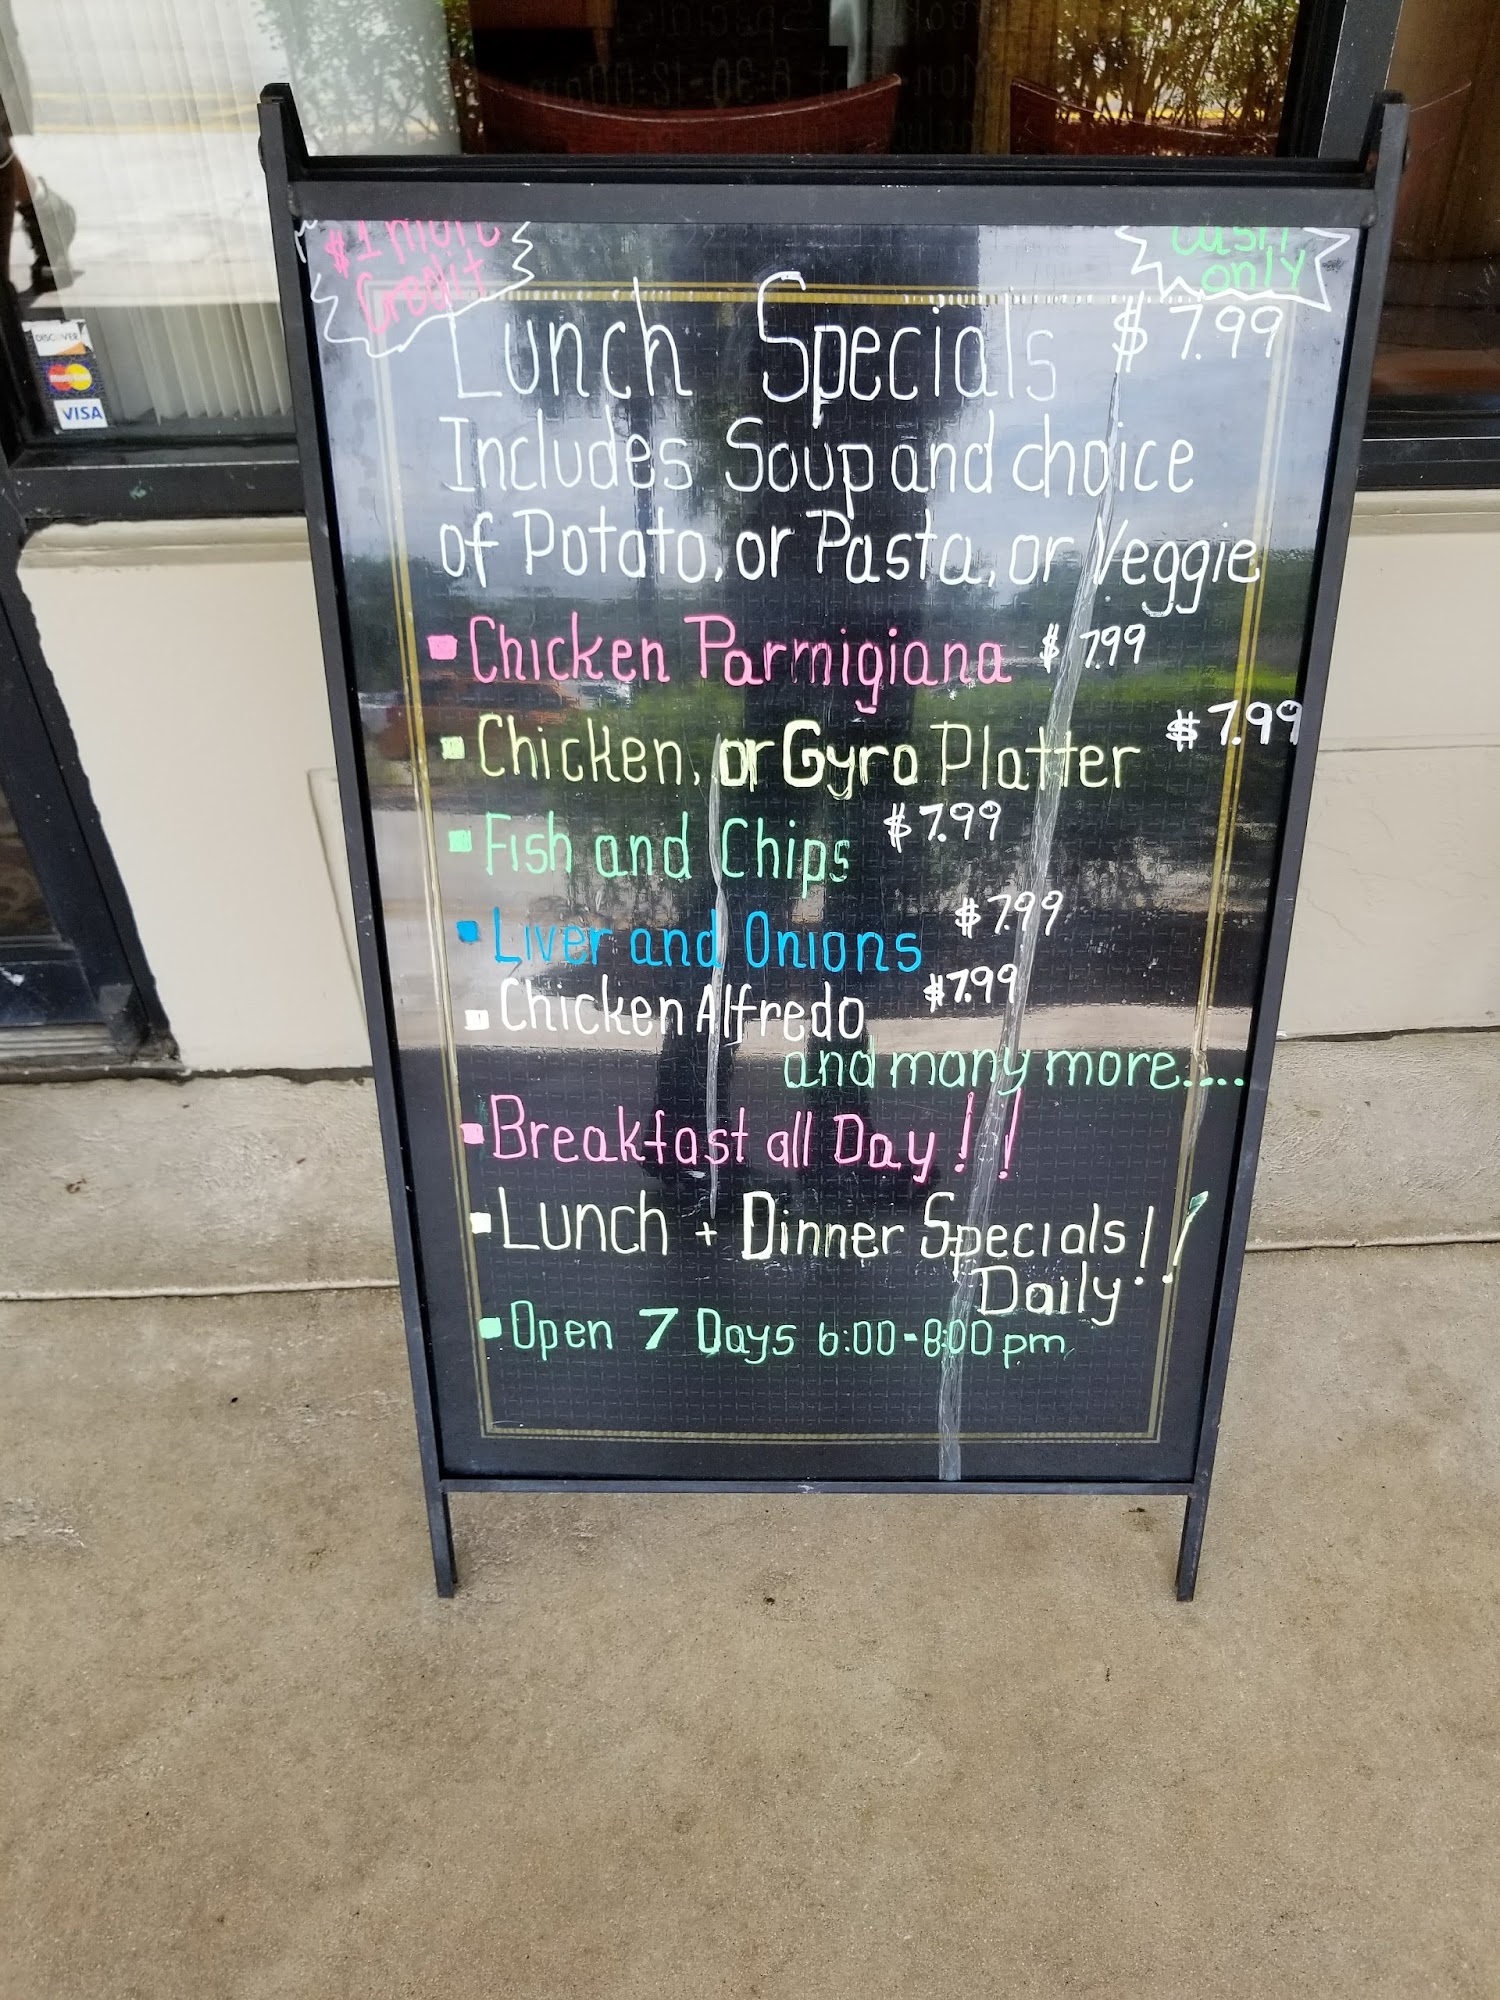 $1 more
Credit
Cash
only
Lunch Specials $7.99
Includes Soup and choice
of Potato, or Pasta, or Veggie
Chicken Parmigiana $7.99
Chicken, or Gyro Platter $7.99
Fish and Chips $7.99
Liver and Onions $7.99
Chicken Alfredo $7.99
and many more....
Breakfast all Day!!
Lunch + Dinner Specials!!
Daily
Open 7 Days 6:00-8:00pm
DISCOVER
MasterCard
VISA